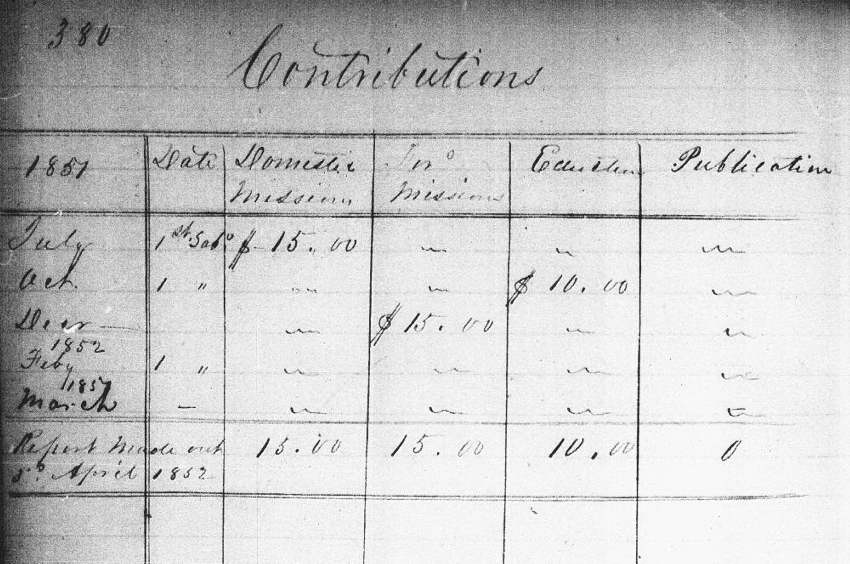 380
Contributions
1851 Date Domestic Missions For⁰ Missions Education Publication
July 1st Sab⁰ $ 15.00 " " "
Oct. 1 " " " $ 10.00 "
Decr — " $ 15.00 " "
1852
Feby 1 " " " " "
185
March — " " " "
Report Made out 15.00 15.00 10.00 0
April 1852